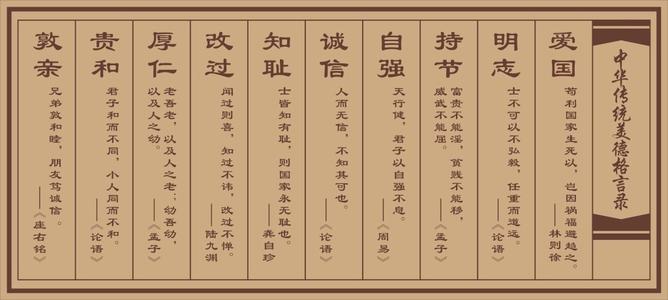 中华传统美德格言录
爱国
苟利国家生死以，岂因祸福避趋之。
——林则徐
明志
士不可以不弘毅，任重而道远。
——《论语》
持节
富贵不能淫，贫贱不能移，
威武不能屈。
——《孟子》
自强
天行健，君子以自强不息。
——《周易》
诚信
人而无信，不知其可也。
——《论语》
知耻
士皆知有耻，则国家永无耻也。
——龚自珍
改过
闻过则喜，知过不讳，改过不惮。
——陆九渊
厚仁
老吾老，以及人之老；幼吾幼，
以及人之幼。
——《孟子》
贵和
君子和而不同，小人同而不和。
——《论语》
敦亲
兄弟敦和睦，朋友笃诚信。
——《座右铭》